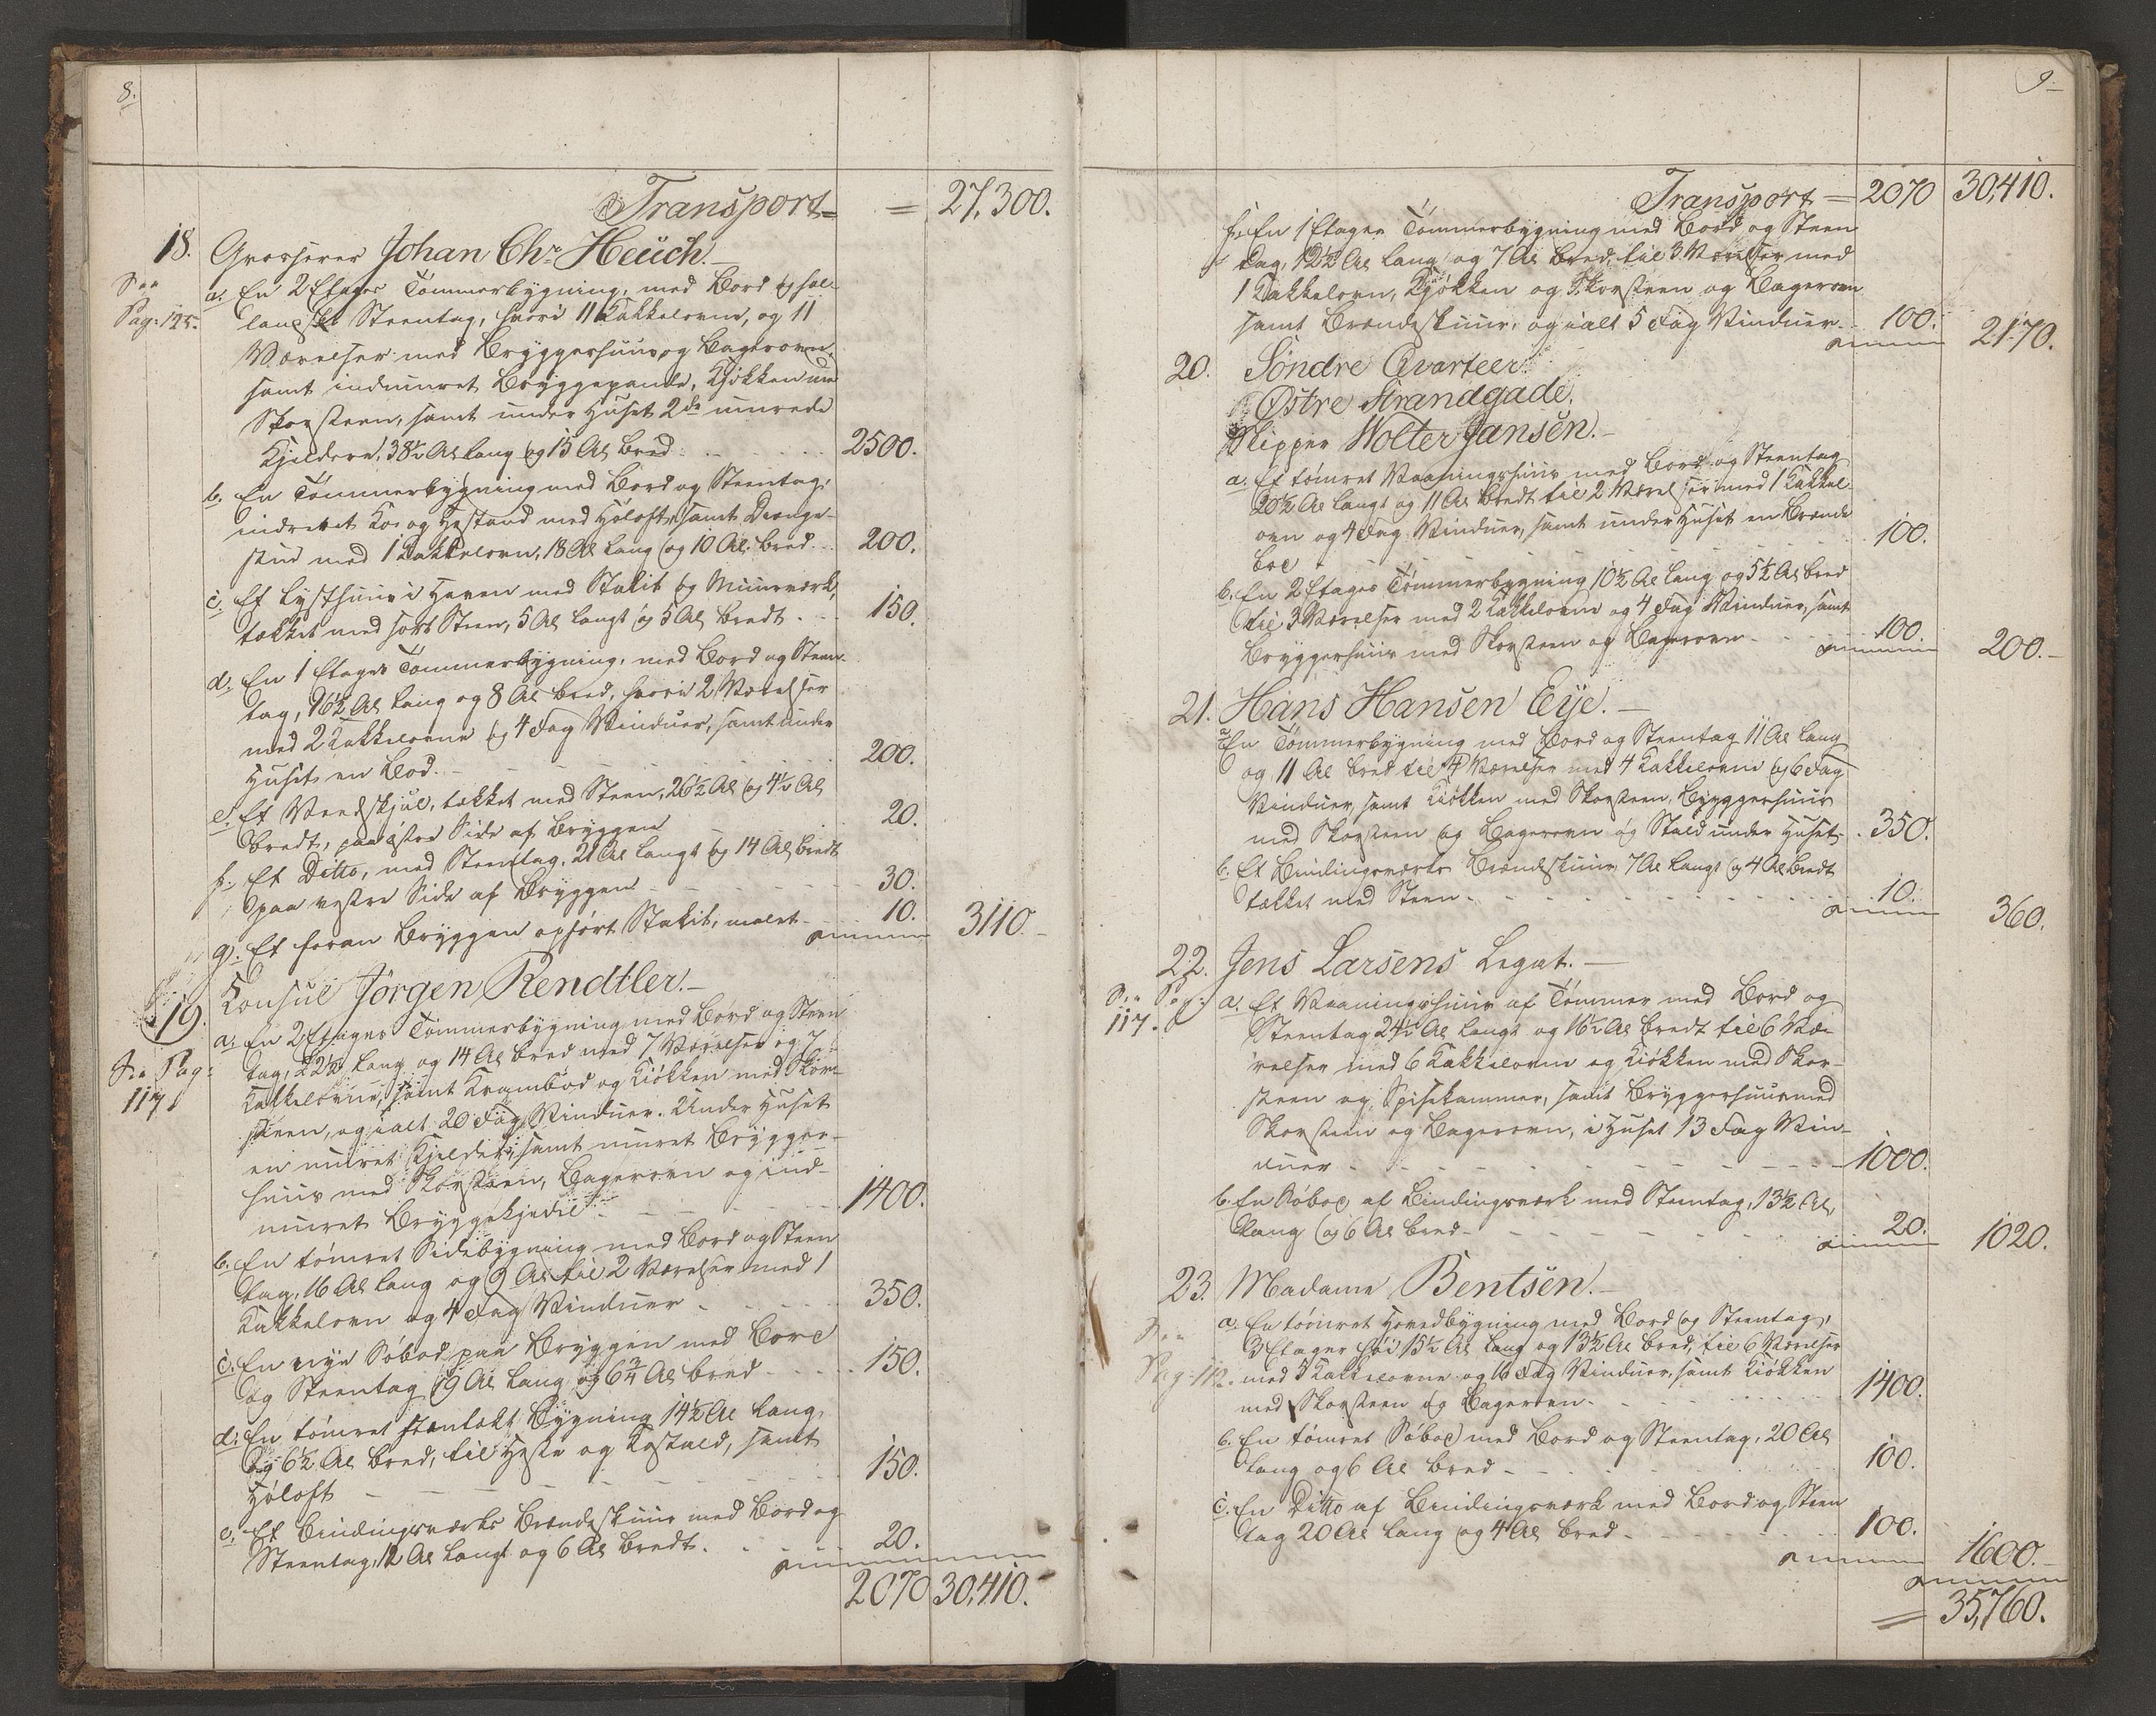 8.
Transport = = 27,300.
18. Grosserer Johan Chr. Heüch.
See Pag: 125.
a. En 2 Etages Tømmerbygning, med Bord og hol-
landsk Steentag, hvori 11 Kakkelovne, og 11
Værelser med Bryggerhuus og Bagerovn,
samt indmuret Bryggepande, Kjøkken med
Skorsteen, samt under Huset 2de murede
Kjeldere, 38½ Al. lang og 15 Al. bred 2500.
b. En Tømmerbygning med Bord og Steentag,
indrettet Koe og Hestand med Høloft, samt Drenge-
stue med 1 Kakkelovn, 18 Al. lang og 10 Al. bred 200.
c. Et Lysthuus i Haven med Stakit og Muurværk,
tækket med sort Steen, 5 Al. langt og 5 Al. bredt 150.
d. En 1 Etages Tømmerbygning, med Bord og Steen-
tag, 16½ Al. lang og 8 Al. bred, hvori 2 Værelser
med 2 Kakkelovne og 4 Fag Vinduer, samt under
Huset en Bod. 200.
e. Et Vedskjul, tækket med Steen, 26½ Al. og 4½ Al.
bredt, paa østre Side af Bryggen 20.
f. Et Ditto, med Steentag, 21 Al. langt og 14 Al. bredt
paa vestre Side af Bryggen 30.
g. Et foran Bryggen opført Stakit, malet 10. 3110.
19. Konsul Jørgen Rendtler.
See Pag: 117
a. En 2 Etages Tømmerbygning med Bord og Steen
tag, 22½ lang og 14 Al. bred med 7 Værelser og 7
Kakkelovne, samt Krambod og Kiøkken med Skor-
steen, og ialt 20 Fag Vinduer. Under Huset
en muret Kjelder, samt muret Brygger-
huus med Skorsteen, Bagerovn og ind-
muret Bryggekjedel 1400.
b. En tømret Sidebygning med Bord og Steen
tag, 16 Al. lang og 9 Al. til 2 Værelser med 1
Kakkelovn og 4 Fag Vinduer 350.
c. En nye Søbod paa Bryggen med Bord
og Steentag 19 Al. lang og 6¾ Al. bred 150.
d. En tømret steenlagt Bygning 14½ Al. lang
og 6½ Al. bred, til Heste og Kostald, samt
Høloft 150.
e. Et Bindingsværks Brændeskuur med Bord og
Steentag, 12 Al. langt og 6 Al. bredt. 20.
2070 30,410.
9
Transport = 2070 30,410.
f. En 1 Etages Tømmerbygning med Bord og Steen
tag, 12½ Al. lang og 7 Al. bred, til 3 Værelser med
1 Kakkelovn, Kjøkken og Skorsteen og Bagerovn
samt Brændeskuur, og ialt 5 Fag Vinduer 100. 2170.
20. Søndre Qvarteer
Østre Strandgade.
Skipper Wolter Jansen.
a. Et tømret Vaaningshuus med Bord og Steentag
20½ Al. langt og 11 Al. bredt til 2 Værelser med 1 Kakkel-
ovn og 4 Fag Vinduer, samt under Huset en Brænde
bod 100.
b. En 2 Etages Tømmerbygning 10½ Al. lang og 5½ Al. bred
til 3 Værelser med 2 Kakkelovne og 4 Fag Vinduer, samt
Bryggerhuus med Skorsteen og Bagerovn 100. 200.
21. Hans Hansen Eye.
a. En Tømmerbygning med Bord og Steentag 11 Al. lang
og 11 Al. bred til 4 Værelser med 4 Kakkelovne og 6 Fag
Vinduer, samt Kiøkken med Skorsteen, Bryggerhuus
med Skorsteen og Bagerovn og Stald under Huset 350.
b. Et Bindingsværks Brændeskuur, 7 Al. langt og 4 Al. bredt
tækket med Steen 10. 360.
22. Jens Larsens Legat.
See Pag: 117.
a. Et Vaaningshuus af Tømmer med Bord og
Steentag 24½ Al. langt og 16½ Al. bredt til 6 Væ-
relser med 6 Kakkelovne og Kiøkken med Skor-
steen og Spisekammer, samt Bryggerhuus med
Skorsteen og Bagerovn, i Huset 13 Fag Vin-
duer 1000.
b. En Søbod af Bindingsværk med Steentag, 13½ Al.
lang og 6 Al. bred 20. 1020.
23. Madame Bentsen.
See Pag: 112.
a. En tømret Hovedbygning med Bord og Steentag,
3 Etager høi 15½ Al. lang og 13½ Al. bred, til 6 Værelser
med 5 Kakkelovne og 16 Fag Vinduer, samt Kiøkken
med Skorsteen og Bagerovn 1400.
b. En tømret Søbod med Bord og Steentag, 20 Al.
lang og 6 Al. bred 100.
c. En Ditto af Bindingsværk med Bord og Steen
tag 20 Al. lang og 4 Al. bred 100. 1600.
= 35,760.